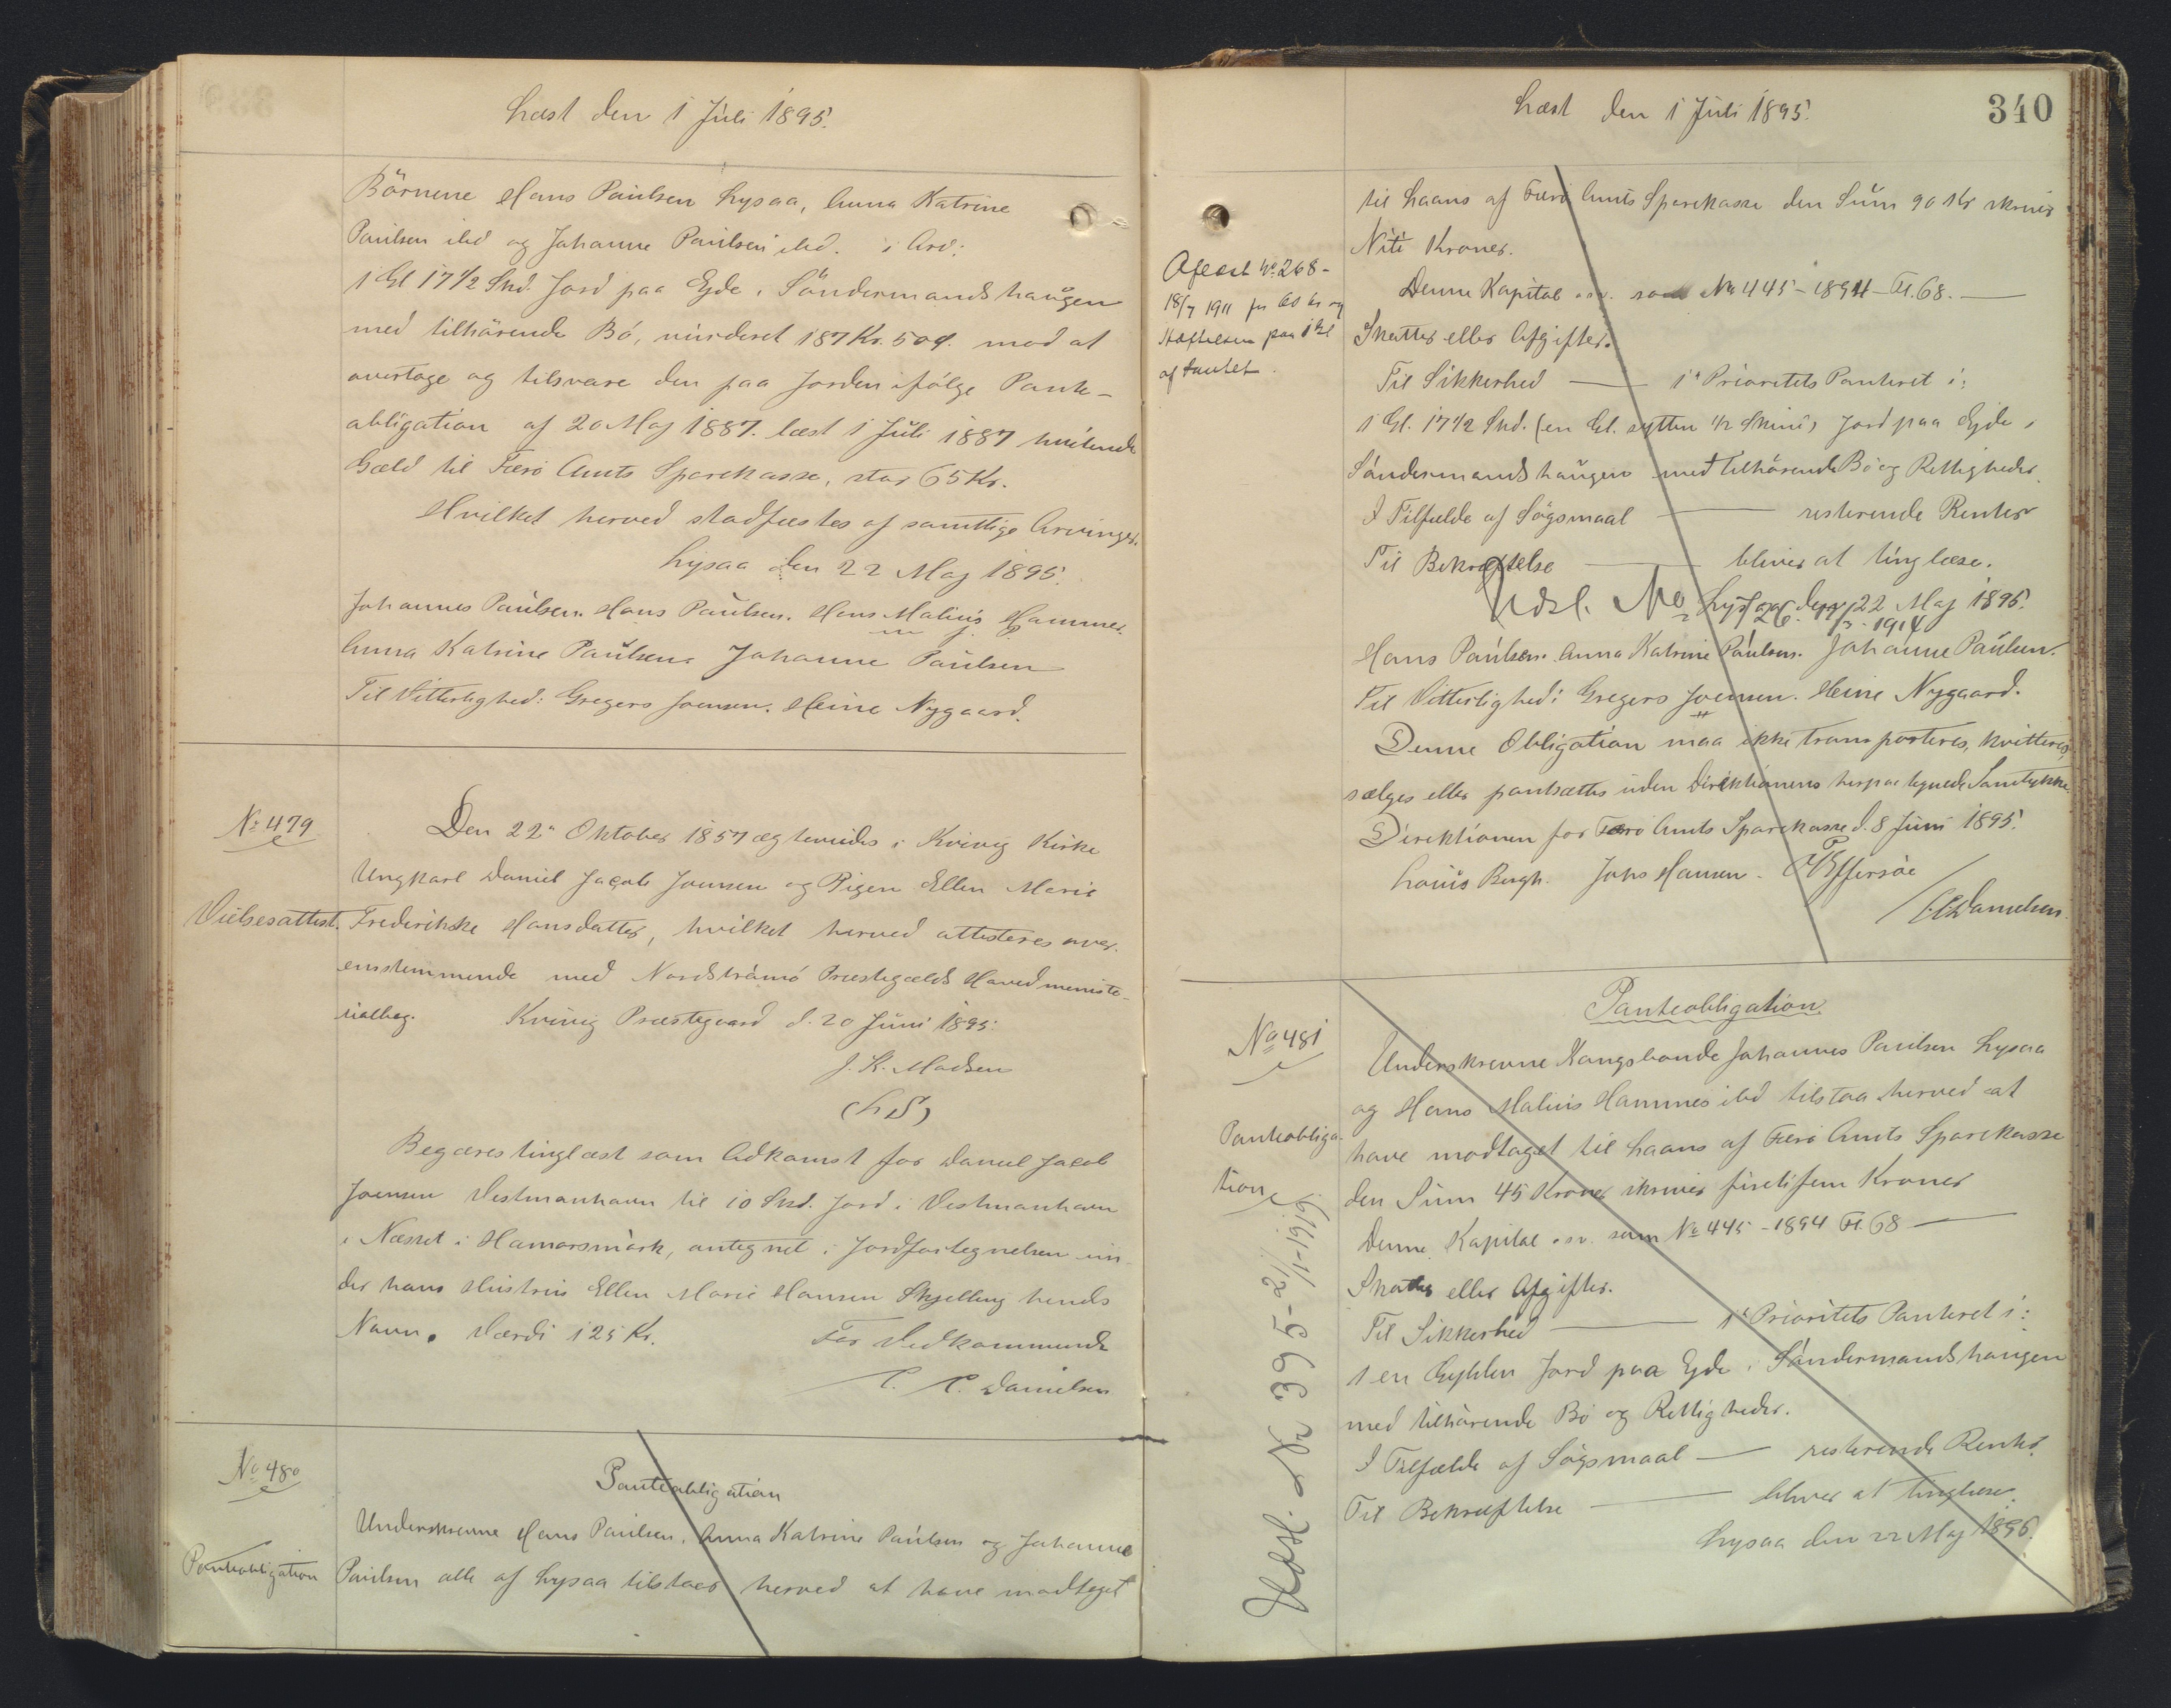 Læst den 1 Juli 1895.
Börnene Hans Paulsen Lysaa, Anna Katrine
Paulsen ibd og Johanne Paulsen ibd. i Arv:
1 Gl 17 1/2 Skd. Jord paa Ejde i Söndermandshaugen
med tilhörende Bö, vurderet 187 Kr. 50 Ø. mod at
overtage og tilsvare den paa Jorden ifölge Pante-
obligation af 20 Maj 1887. læst 1 Juli 1887 hvilende
Gæld til Færö Amts Sparekasse, stor 65 Kr.
Hvilket herved stadfæstes af samtlige Arvinger.
Lysaa den 22 Maj 1895.
Johannes Paulsen. Hans Paulsen. Hans Malius Hammer.
m f. P.
Anna Katrine Paulsen. Johanne Paulsen
Til Vitterlighed: Gregers Joensen. Heine Nygaard.
No 479
Vielsesattest.
Den 22de Oktober 1857 ægteviedes i Kvivig Kirke
Ungkarl Daniel Jacob Joensen og Pigen Ellen Marie
Frederikke Hansdatter, hvilket herved attesteres over-
ensstemmende med Nordströmö Præstegjælds Hovedministe-
rialbog. Kvivig Præstegaard d. 20 Juni 1895.
J. K. Madsen
(L.S)
Begæres tinglæst som Adkomst for Daniel Jacob
Joensen Vestmanhavn til 10 Skd. Jord i Vestmanhavn
i Næsset i Hamarsmark, antegnet i Jordfortegnelsen un-
der hans Hustrus Ellen Marie Hansen Skjelling hendes
Navn. Værdi 125 Kr. For Vedkommende
C. C. Danielsen
No 480
Panteobligation
Panteobligation
Underskrevne Hans Paulsen, Anna Katrine Paulsen og Johanne
Paulsen alle af Lysaa tilstaar herved at have modtaget
Læst den 1 Juli 1895.
340
til Laans af Færö Amts Sparekasse den Sum 90 Kr skriver
Niti Kroner.
Denne Kapital o.s.v. som No 445-1894-Fl.68.
Skatter eller Afgifter.
Til Sikkerhed 1st Prioritets Panteret i:
1 Gl. 17 1/2 Skd. (en Gl. sytten 1/2 Skind) Jord paa Ejde i
Söndermandshaugen med tilhörende Bö og Rettigheder.
I Tilfælde af Sögsmaal resterende Renter
Til Bekræftelse bliver at tinglæse.
Aflæst No 268-
18/7 1911 for 60 kr og
Hæftelsen paa 1 Gl
af Pantet.
Lysaa den 22 Maj 1895.
Udsl. No 26. 1914
Hans Paulsen. Anna Katrine Paulsen. Johanne Paulsen.
Til Vitterlighed: Gregers Joensen. Heine Nygaard.
Denne Obligation maa ikke transporteres, kvitteres,
sælges eller pantsættes uden Direktionens herpaa tegnede Samtykke.
Direktionen for Færö Amts Sparekasse d. 8 Juni 1895.
Louis Bergh. Johs Hansen. Effersöe
/ C.C. Danielsen.
No 481
Panteobliga-
tion
Udsl. No 395-21/1-1919
Panteobligation.
Underskrevne Kongsbonde Johannes Paulsen Lysaa
og Hans Malius Hammer ibd tilstaa herved at
have modtaget til Laans af Færö Amts Sparekasse
den Sum 45 Kroner skriver firetifem Kroner
Denne Kapital o.s.v. som No 445-1894 Fl. 68
Skatter eller Afgifter.
Til Sikkerhed 1st Prioritets Panteret i:
1 en Gylden Jord paa Ejde i Söndermandshaugen
med tilhörende Bö og Rettigheder.
I Tilfælde af Sögsmaal resterende Renter.
Til Bekræftelse bliver at tinglæse.
Lysaa den 22 Maj 1895.